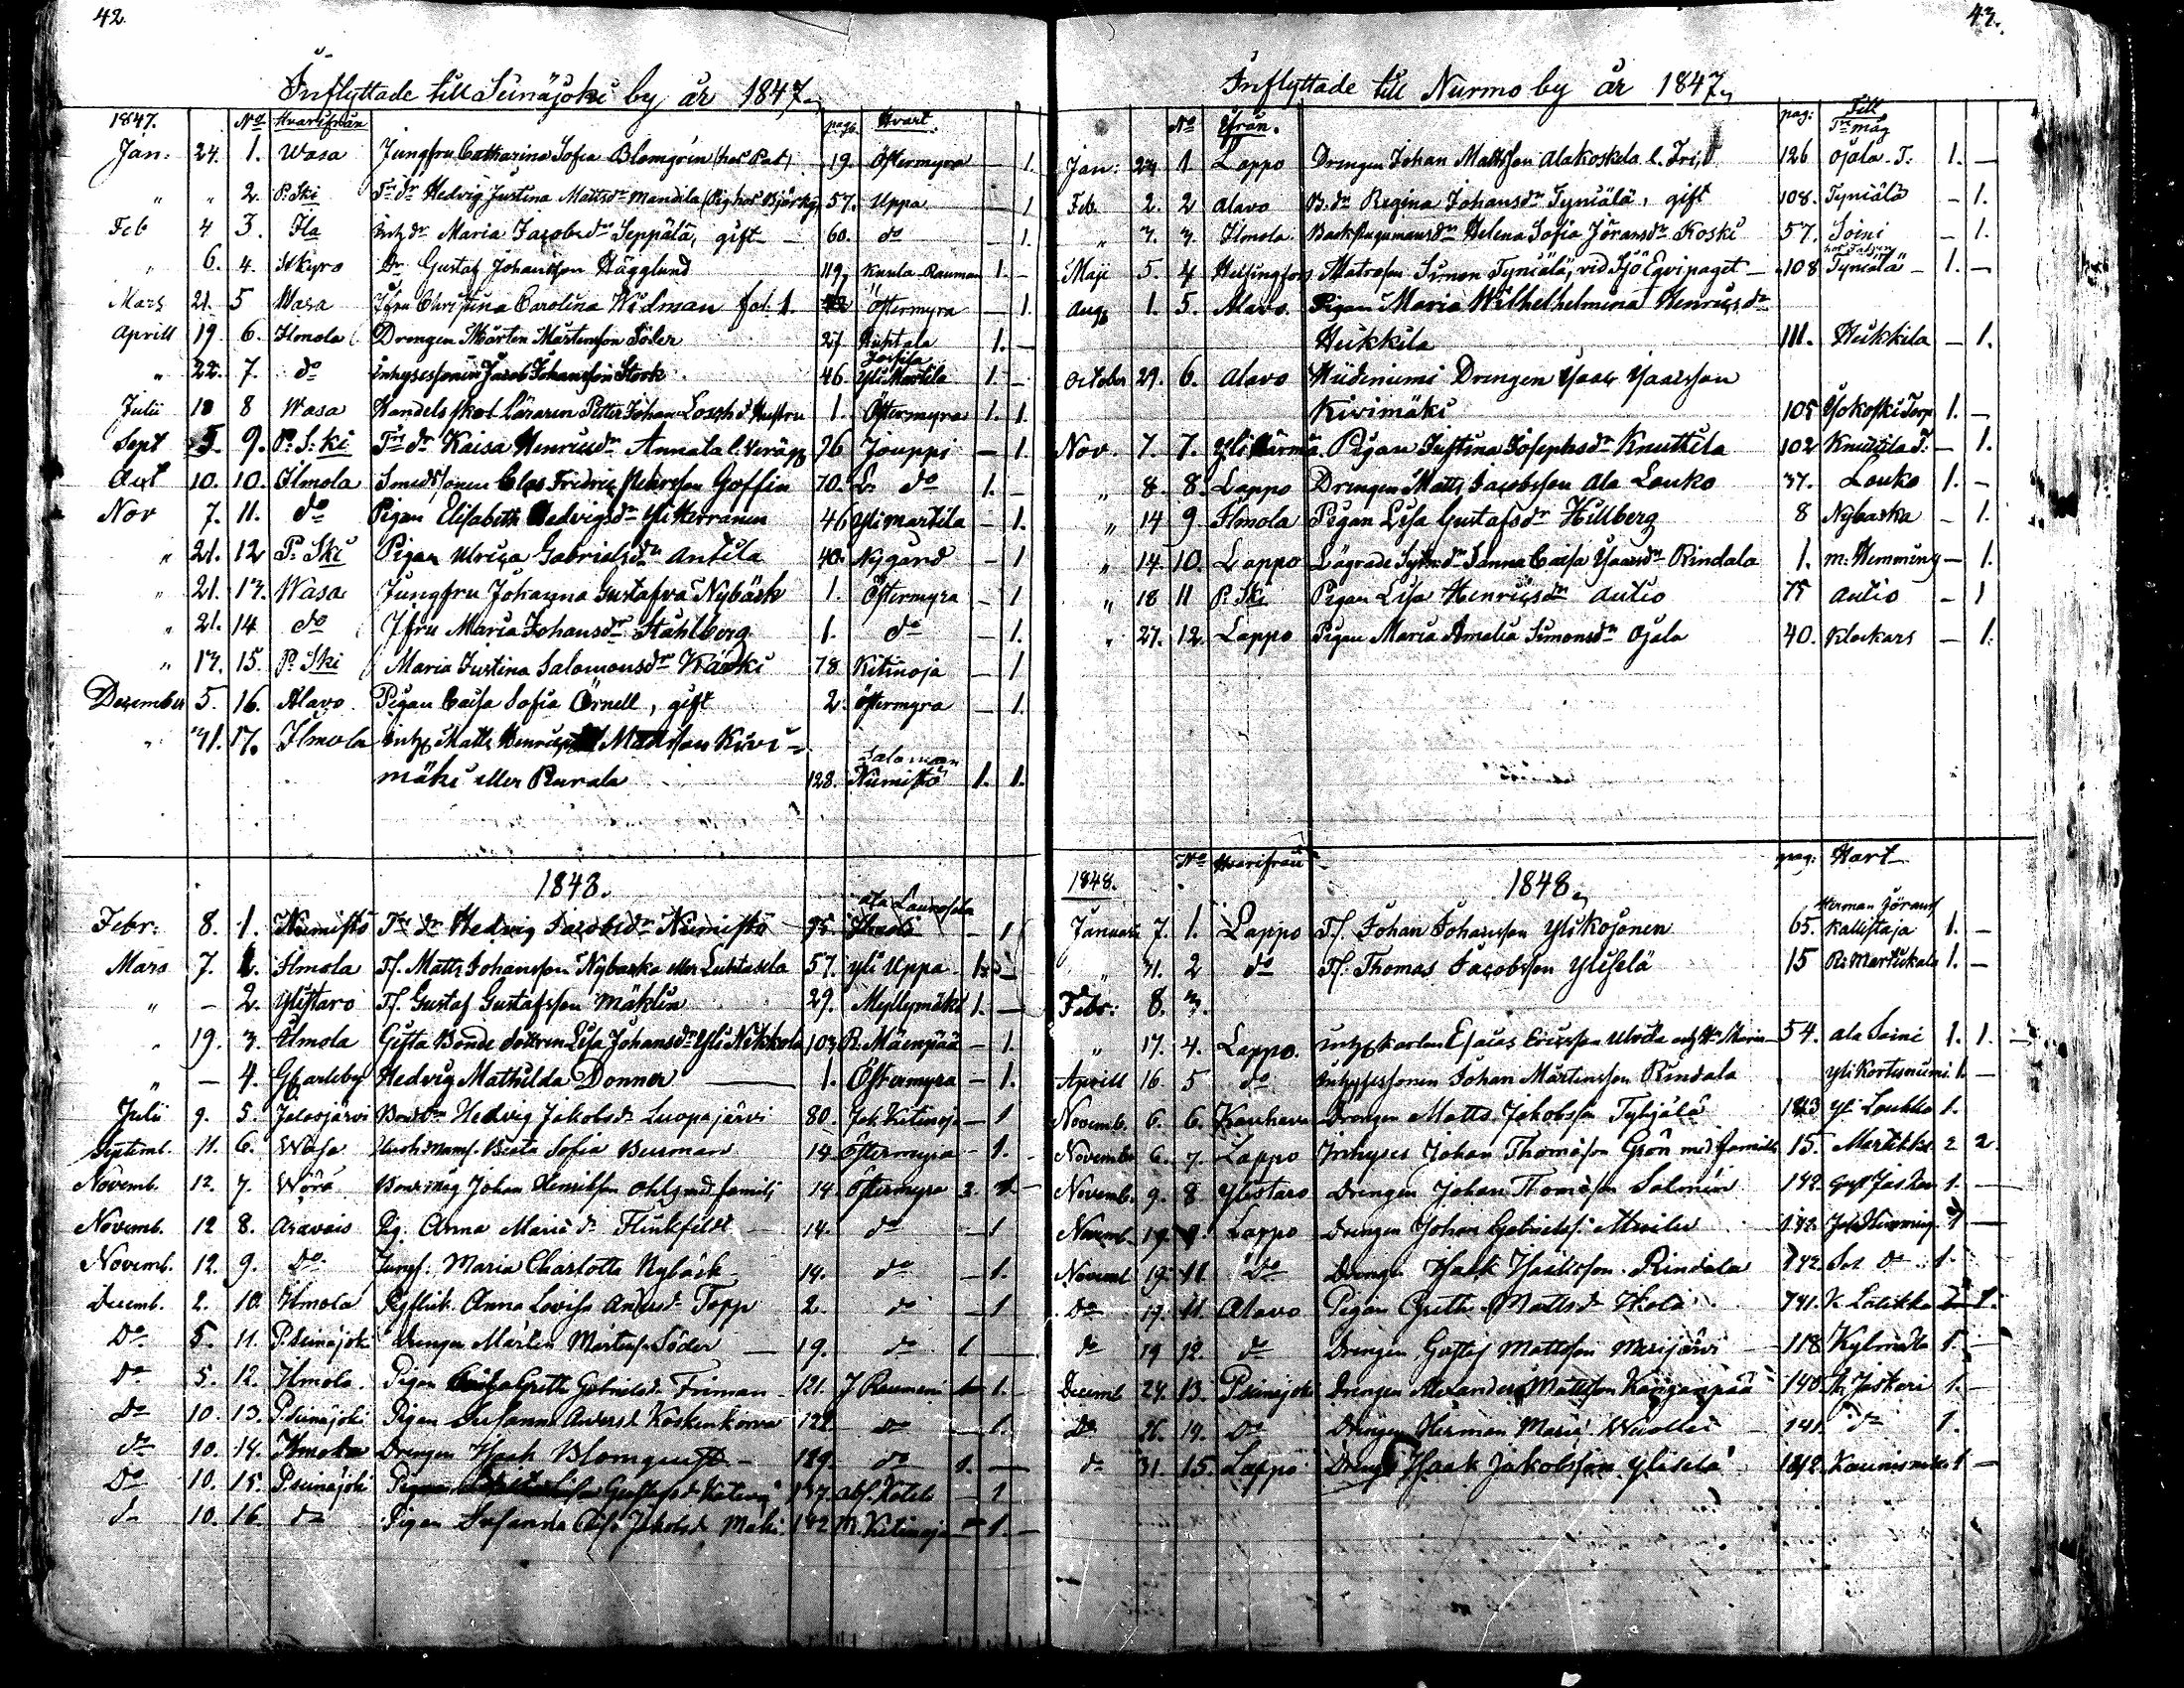 42.
Inflyttade till Seinäjoki by år 1847.
1847. No Hvarifrån pag. Hvart.
Jan: 24. 1. Wasa Jungfru Catharina Sofia Blomgrén (hos Pat) 19. Östermyra — 1.
" " 2. P: Ski Tr dr Hedvig Justina Mattsdr Mandila (Pig hos Björkq) 57. Uppa — 1
Feb 4 3. Ila Inh dr Maria Jacobsdr Seppälä, gift — 60. do — 1.
" 6. 4. Stkyro Dr Gustaf Johansson Hägglund 119. Knula Rauman 1. —
Mars 21. 5 Wasa Jfru Christina Carolina Widman fol. 1. Östermyra — 1.
Aprill 19. 6. Ilmola Drengen Mårten Mårtensson Söder 27 Huhtala 1. —
" 22. 7. do Inhysessonen Jacob Johansson Stork 46 Yli Martila 1. —
Julii 10 8 Wasa Handels skol Läraren Petter Johan Hustru 1. Östermyra 1. 1.
Sept 5 9. P: S:ki Tr dr Kaisa Henricsdr Annala l. 76 Jouppi — 1.
Oct 10. 10. Ilmola Smedssonen Clas Fredric Petersson Goffin 70. do 1. —
Nov 7. 11. do Pigan Elisabeth Hedvigsdr Yli Herranen 46 Yli Martila — 1.
" 21. 12 P: Ski Pigan Ulrica Gabrielsdr Antila 40. Nygård — 1
" 21. 13. Wasa Jungfru Johanna Gustafva Nybäck 1. Östermyra — 1
" 21. 14 do Jfru Maria Johansdr Ståhlberg 1. do — 1.
" 13. 15. P: Ski Maria Justina Salomonsdr Kärki 78 Kitinoja — 1
December 5. 16. Alavo Pigan Caisa Sofia Örnell, gift 2. Östermyra — 1.
" 31. 17. Ilmola Inh Matts Mattsson Kivi-
mäki eller Rurala 128. Salomon Niemistö 1. 1.
1848.
Febr: 8. 1. Niemistö Tr dr Hedvig Jacobsdr Niemistö 95. — 1
Mars 7. 1. Ilmola Tf. Matts Johansson Nybacka eller Luhtasela 57. Yli Uppa 1.
" — 2. Ylistaro Tf. Gustaf Gustafsson Mäklin 29. Myllymäki 1. —
" 19. 3. Ilmola Gifta Bonde dottren Lisa Johansdr Yli Nikkola 103 R. Mäenpää — 1.
" — 4. Gkarleby Hedvig Mathilda Donner — 1. Östermyra — 1.
Julii 9. 5. Jalasjärvi Bondr Hedvig Jakobsd Luopajärvi 80. Jak Kitinoja — 1
Septemb. 11. 6. Wasa Mams. Beata Sofia Burman 14. Östermyra — 1.
Novemb. 12. 7. Wörå Johan Henriksson Ohls med familj 14 Östermyra 3.
Novemb. 12 8. Oravais Pig. Anna Marie dr Flinkfeldt — 14. do — 1
Novemb. 12. 9. Do Jungf. Maria Charlotta Nybäck 14. do — 1.
Decemb. 2. 10. Ilmola Anna Lovisa Andersd. Topp 2. do — 1
Do 5. 11. P. Seinäjoki Drengen Mårten Mårtenss. Söder — 19. do 1 —
Do 5. 12. Ilmola Pigan Greta Gabrielsd. Friman 121. J Rauman — 1.
Do 10. 13. P. Seinäjoki Pigan Susanna Andersd. Koskenkorva 122. do — 1.
do 10. 14. Ilmola Drengen Isaak Blomquist — 189. do 1. —
Do 10. 15. P. Seinäjoki Pigan Gustafsd. 137. — 1
do 10. 16. do Pigan Susanna Caisa Jakobsd. Mäki 142 M. Kitinoja — 1.
43.
Inflyttade till Nurmo by år 1847.
No Ifrån. pag: Till
Jan: 24 1 Lappo Drengen Johan Mattsson Alakoskela l. Frid 126 Tre måg Ojala T: 1. —
Feb. 2. 2 Alavo B. dr Regina Johansdr Tyniälä, gift 108. Tyniälä — 1.
" 3. 3. Ilmola Backstugumansdr Helena Sofia Jöransdr Koski 57. Soini — 1.
Maji 5. 4 Helsingfors Matrosen Simon Tyniälä, vid Sjö Eqvipaget — 108 Tyniälä — 1. —
Aug 1. 5. Alavo Pigan Maria Wilhelhelmina Henricsdr
Heikkila 111. Heikkila — 1.
October 29. 6. Alavo Hiidiniemi Drengen Isaac Isacsson
Kivimäki 105 Yokoski Torp 1. —
Nov. 7. 7. Yli Härmä Pigan Justina Josephsdr Knuttila 102 Knuttila T: — 1.
" 8. 8. Lappo Drengen Matts Jacobsson Ala Louko 37. Louko 1. —
" 14 9 Ilmola Pigan Lisa Gustafsdr Hillberg 8 Nybacka — 1.
" 14. 10. Lappo Lägrade Sytn. dr Sanna Caisa Isacsdr Rindala 1. m: Hemming — 1.
" 18 11 P. Ski Pigan Lisa Henricsdr Autio 75 Autio — 1
" 27. 12. Lappo Pigan Maria Amalia Simonsdr Ojala 40. Klockars — 1.
No Hvarifrån pag: Hart
1848. 1848.
Januari 7. 1. Lappo Tf. Johan Johansson Ylikojonen 65. Herman Jöranss Kallistaja 1. —
" 31. 2 do Tf. Thomas Jacobsson Yliselä 15 R: Martikala 1. —
Febr: 8. 3.
" 17. 4. Lappo. Inh karlen Esaias Ericsson Ulvila och Hu Maria 54. Ala Soini 1. 1.
Aprill 16. 5 do Inhysessonen Johan Mårtensson Rindala Yli Kortesniemi 1. —
Novemb. 6. 6. Kauhava Drengen Matts Jakobsson Tyhjälä 143 Yli Loukko 1.
November 6. 7. Lappo Inhyses Johan Thomasson Grön med familj 15. Martikka 2 2.
Novemb. 9. 8 Ylistaro Drengen Johan Thomasson Salmén 142. 1. —
Novemb. 19. Lappo Drengen Johan Gabrielss. 142. 1 —
Novemb. 19. 11. Do Drengen Isaak Isaksson Rindala 142. do 1.
Do 19. 11. Alavo Pigan Greta Mattsd. 141. K Latikka 1.
do 19 12. do Drengen Gustaf Mattsson Merijärvi 118 Kylmälä 1. —
Decemb 24. 13. P. Seinäjoki Drengen Alexander Mattsson Kangaspää 140 Jaskari 1. —
Do 26. 14. Do Drengen Herman 141. do 1.
do 31. 15. Lappo Drengen Isaak Jakobsson Yliselä 142. 1 —